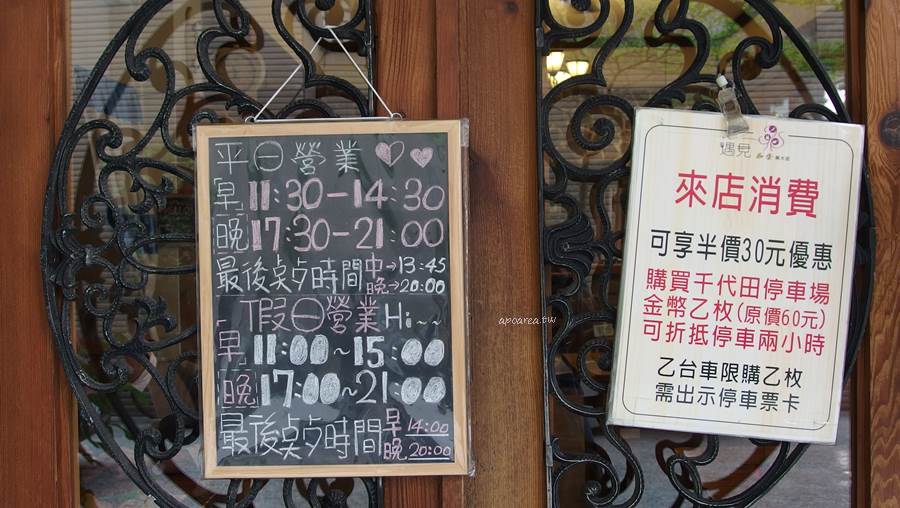 平日營業
早 11:30-14:30
晚 17:30-21:00
最後点夕時間 中→13:45
晚→20:00
假日營業 Hi~~
早 11:00~15:00
晚 17:00~21:00
最後点夕時間 早 14:00
晚 20:00
apoarea.tw
遇見
來店消費
可享半價30元優惠
購買千代田停車場
金幣乙枚(原價60元)
可折抵停車兩小時
乙台車限購乙枚
需出示停車票卡